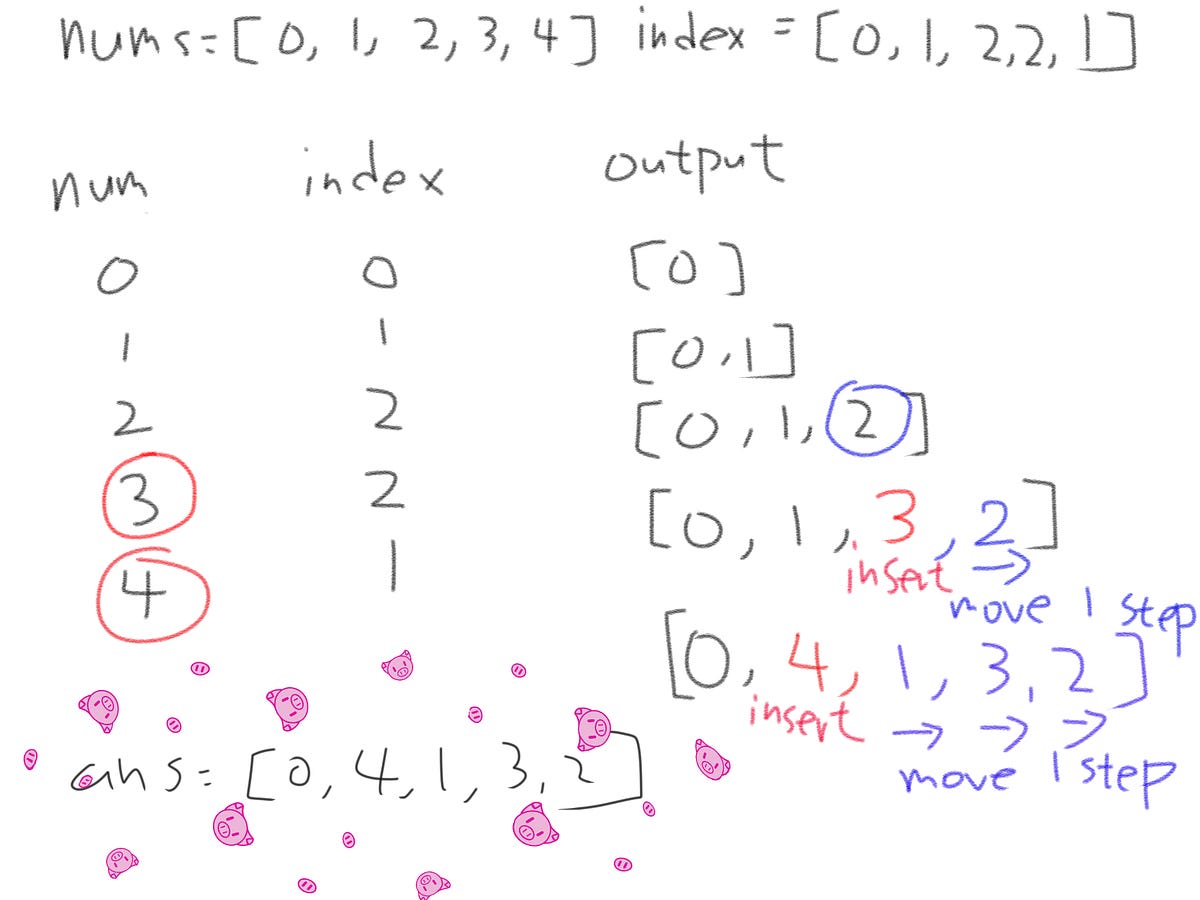 nums=[0, 1, 2, 3, 4] index = [0, 1, 2, 2, 1]
num index output
0 0 [0]
1 1 [0, 1]
2 2 [0, 1, 2]
3 2 [0, 1, 3, 2]
insert move 1 step
4 1 [0, 4, 1, 3, 2]
insert → → →
move 1 step
ans= [0, 4, 1, 3, 2]